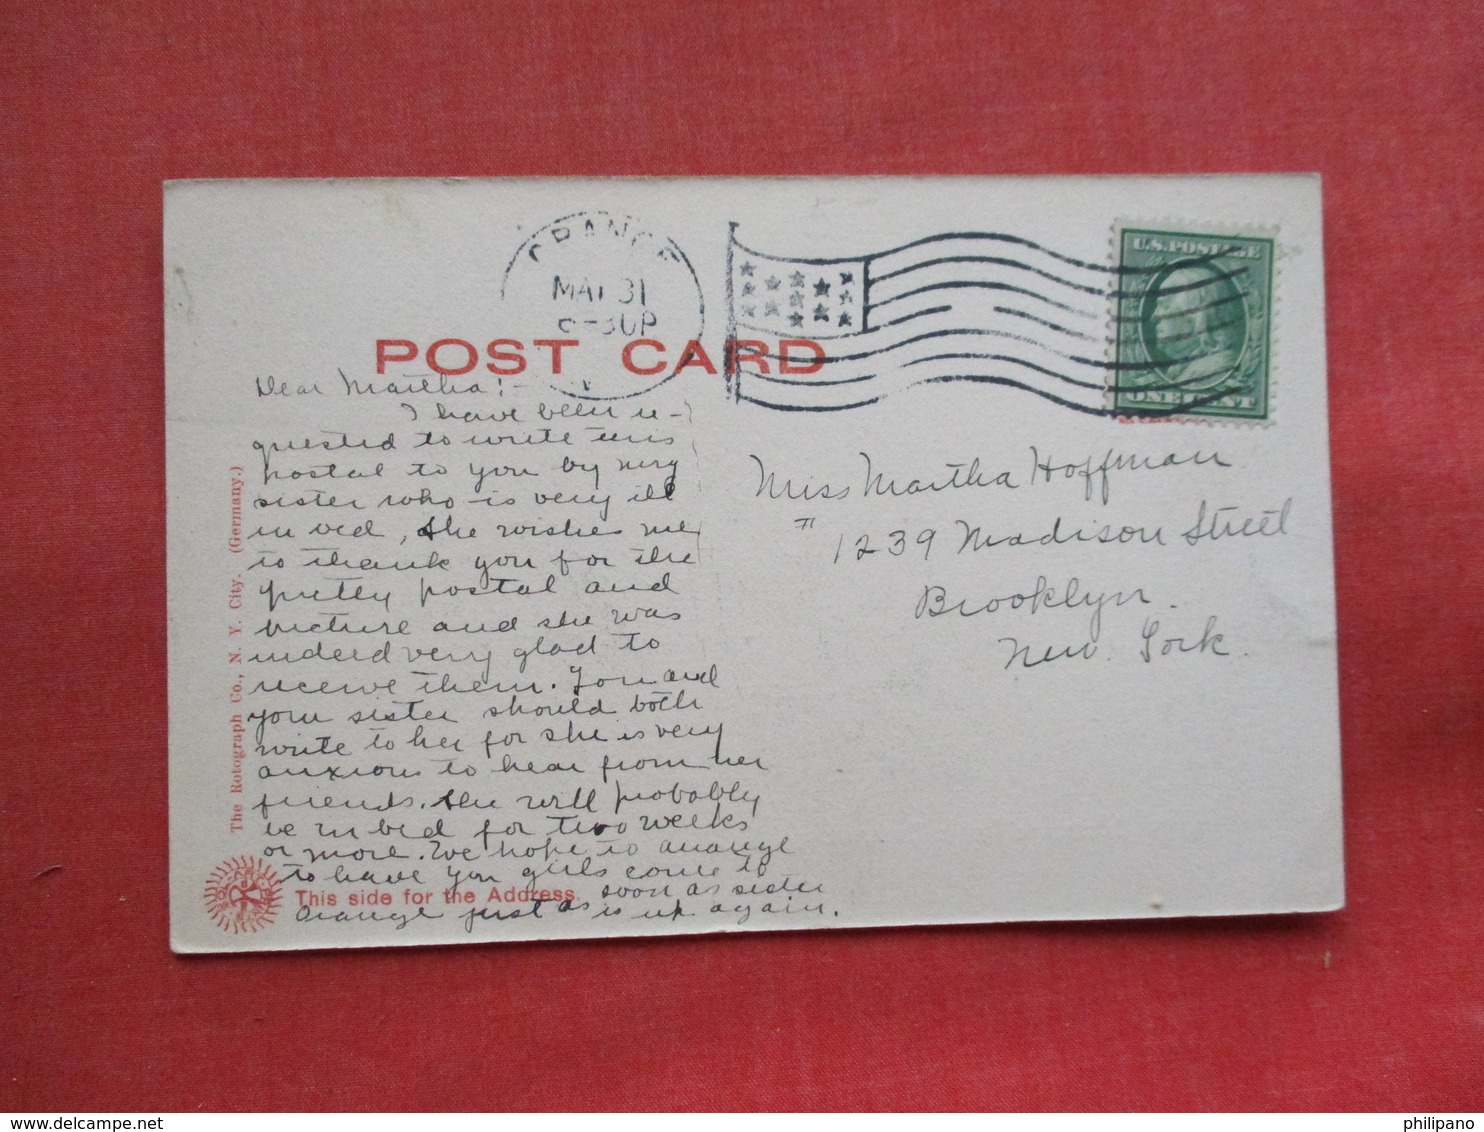 ORANGE
MAY 31
6-30P
N
U.S. POSTAGE
ONE CENT
POST CARD
Dear Martha:-
I have been re-
quested to write this
postal to you by my
sister who is very ill
in bed, She wishes me
to thank you for the
pretty postal and
picture and she was
indeed very glad to
receive them. You and
your sister should both
write to her for she is very
anxious to hear from her
friends. She will probably
be in bed for two weeks
or more. We hope to arrange
to have you girls come to
Orange just as soon as sister
is up again.
Miss Martha Hoffman
# 1239 Madison Street
Brooklyn.
New York.
The Rotograph Co., N. Y. City. (Germany.)
This side for the Address.
philipano